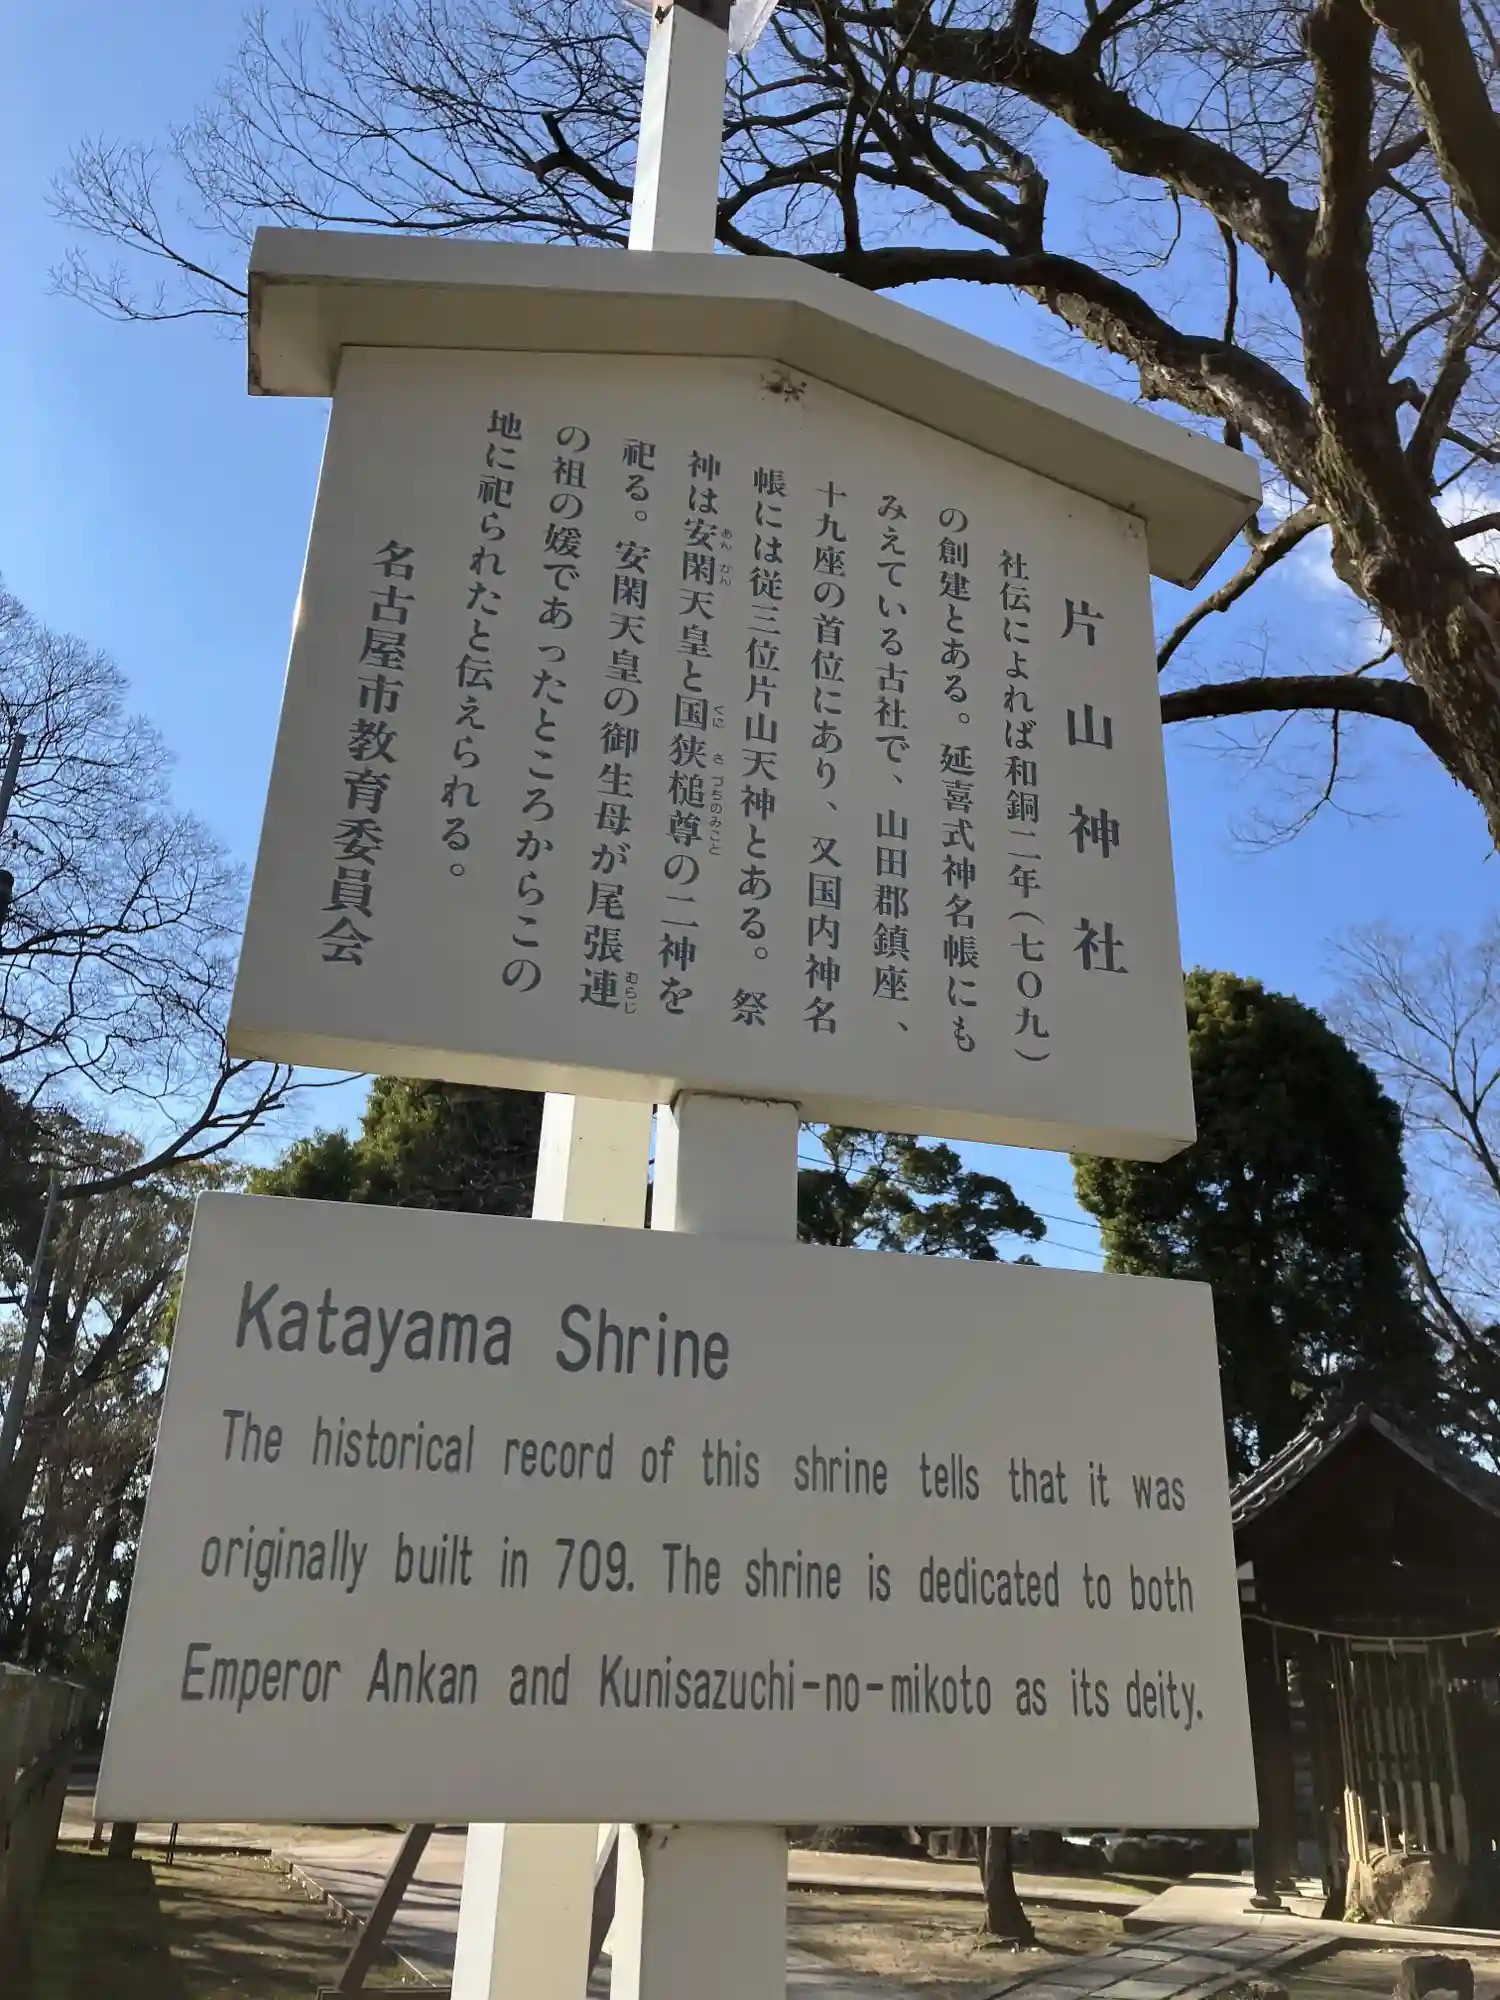 片山神社
社伝によれば和銅二年(七〇九)
の創建とある。延喜式神名帳にも
みえている古社で、山田郡鎮座、
十九座の首位にあり、又国内神名
帳には従三位片山天神とある。祭
神は安閑天皇と国狭槌尊の二神を
あん かん
くに さ づちのみこと
祀る。安閑天皇の御生母が尾張連
むらじ
の祖の媛であったところからこの
地に祀られたと伝えられる。
名古屋市教育委員会
Katayama Shrine
The historical record of this shrine tells that it was
originally built in 709. The shrine is dedicated to both
Emperor Ankan and Kunisazuchi-no-mikoto as its deity.